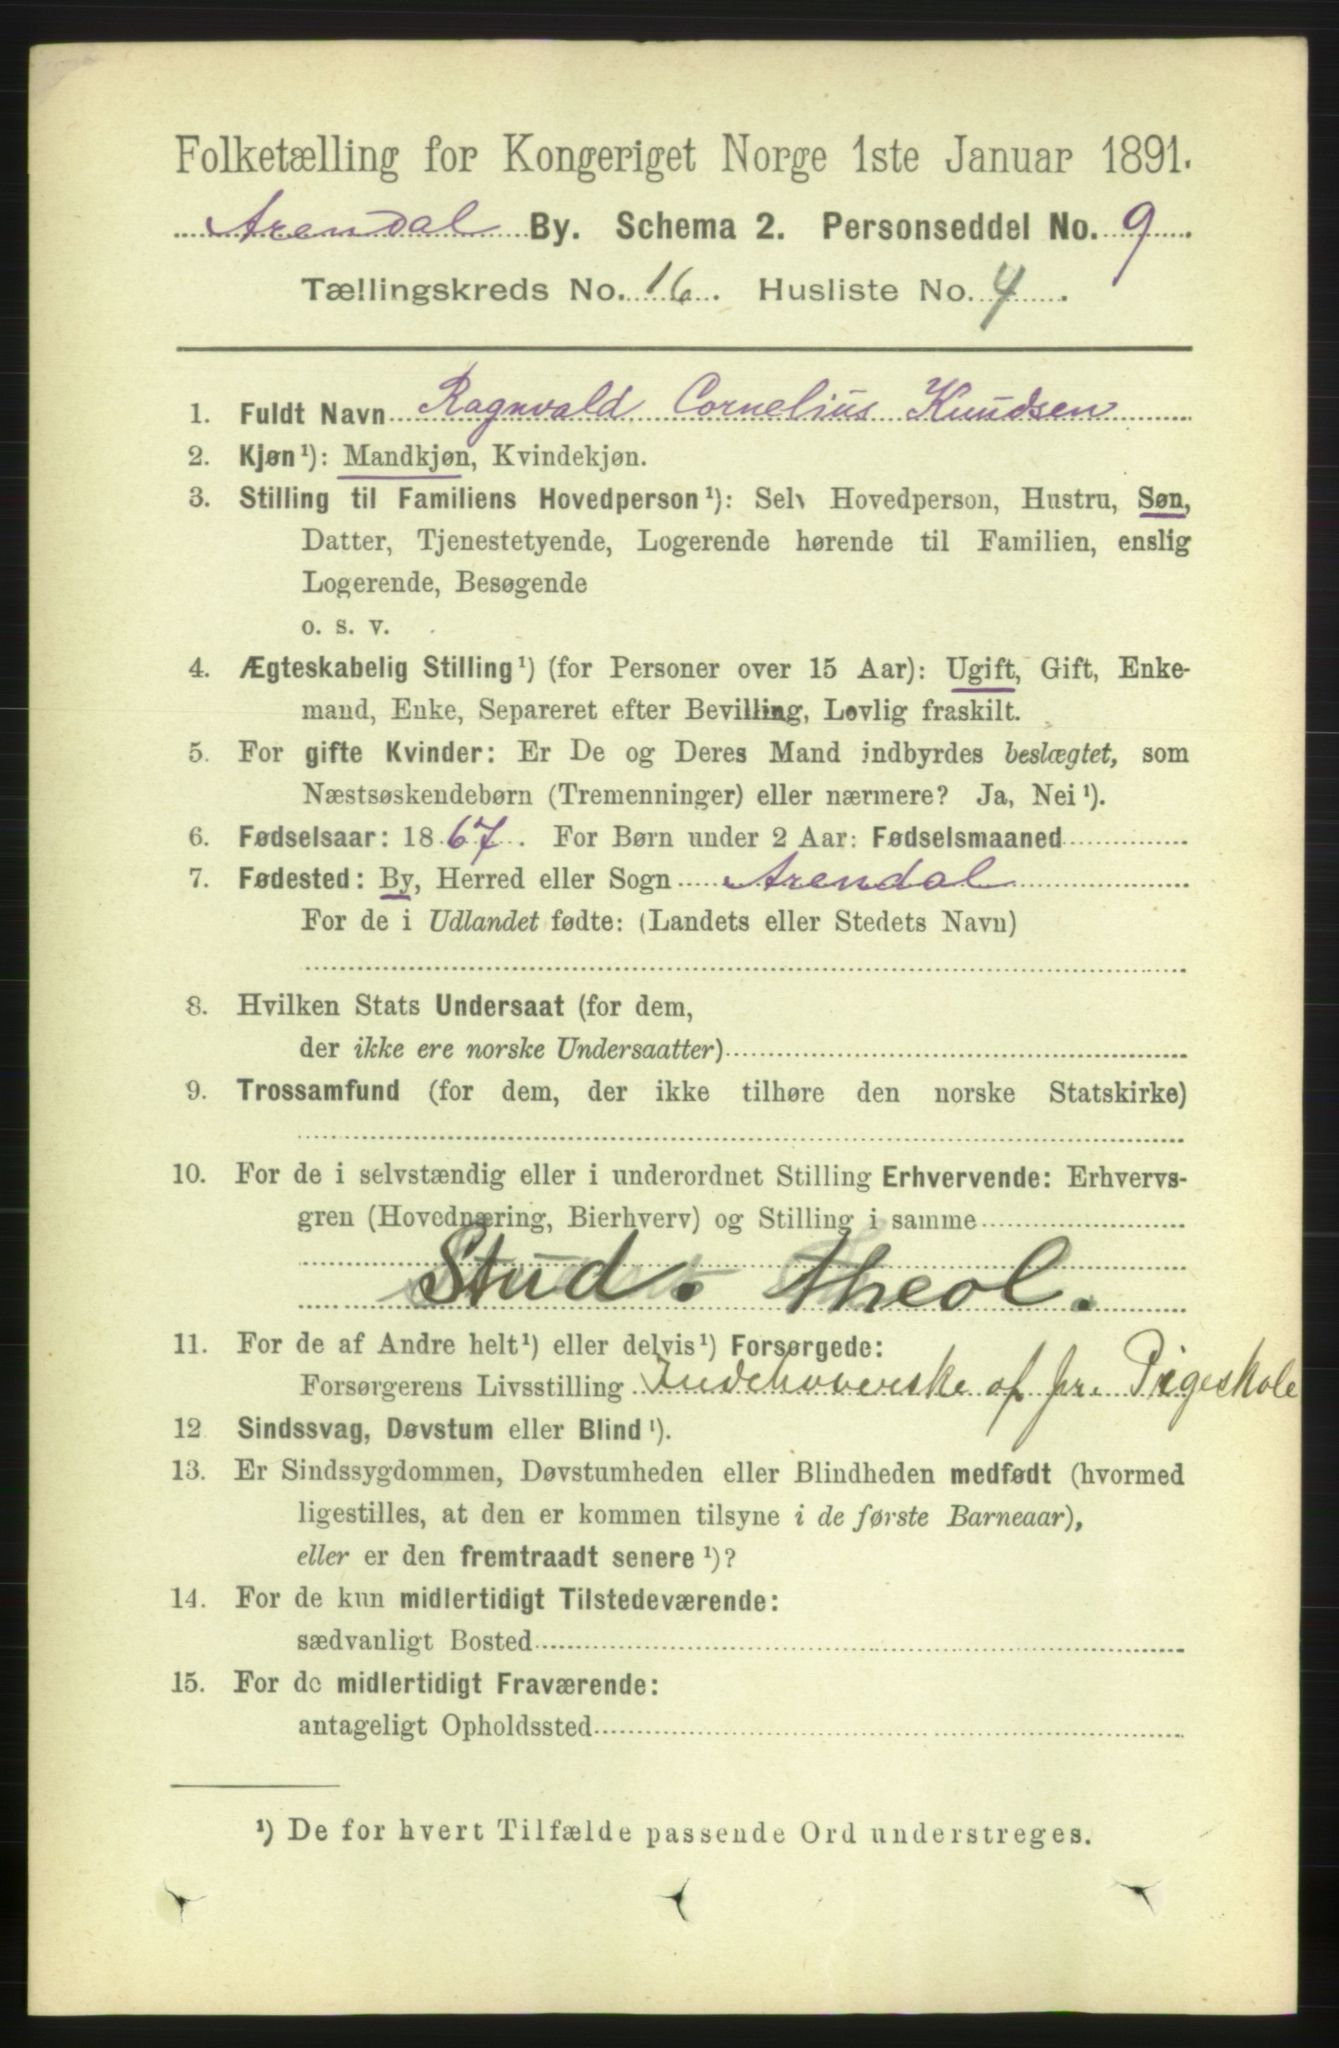 Folketælling for Kongeriget Norge 1ste Januar 1891.
Arendal By. Schema 2. Personseddel No. 9.
Tællingskreds No. 16. Husliste No. 4.
1. Fuldt Navn Ragnvald Cornelius Knudsen
2. Kjøn¹): Mandkjøn, Kvindekjøn.
3. Stilling til Familiens Hovedperson¹): Selv Hovedperson, Hustru, Søn,
Datter, Tjenestetyende, Logerende hørende til Familien, enslig
Logerende, Besøgende
o. s. v.
4. Ægteskabelig Stilling¹) (for Personer over 15 Aar): Ugift, Gift, Enke-
mand, Enke, Separeret efter Bevilling, Lovlig fraskilt.
5. For gifte Kvinder: Er De og Deres Mand indbyrdes beslægtet, som
Næstsøskendebørn (Tremenninger) eller nærmere? Ja, Nei¹).
6. Fødselsaar: 1867. For Børn under 2 Aar: Fødselsmaaned
7. Fødested: By, Herred eller Sogn Arendal
For de i Udlandet fødte: (Landets eller Stedets Navn)
8. Hvilken Stats Undersaat (for dem,
der ikke ere norske Undersaatter)
9. Trossamfund (for dem, der ikke tilhøre den norske Statskirke)
10. For de i selvstændig eller i underordnet Stilling Erhvervende: Erhvervs-
gren (Hovednæring, Bierhverv) og Stilling i samme
Stud. theol.
11. For de af Andre helt¹) eller delvis¹) Forsørgede:
Forsørgerens Livsstilling Indehaverske af pr. Pigeskole
12 Sindssvag, Døvstum eller Blind¹).
13. Er Sindssygdommen, Døvstumheden eller Blindheden medfødt (hvormed
ligestilles, at den er kommen tilsyne i de første Barneaar),
eller er den fremtraadt senere¹)?
14. For de kun midlertidigt Tilstedeværende:
sædvanligt Bosted
15. For de midlertidigt Fraværende:
antageligt Opholdssted
¹) De for hvert Tilfælde passende Ord understreges.